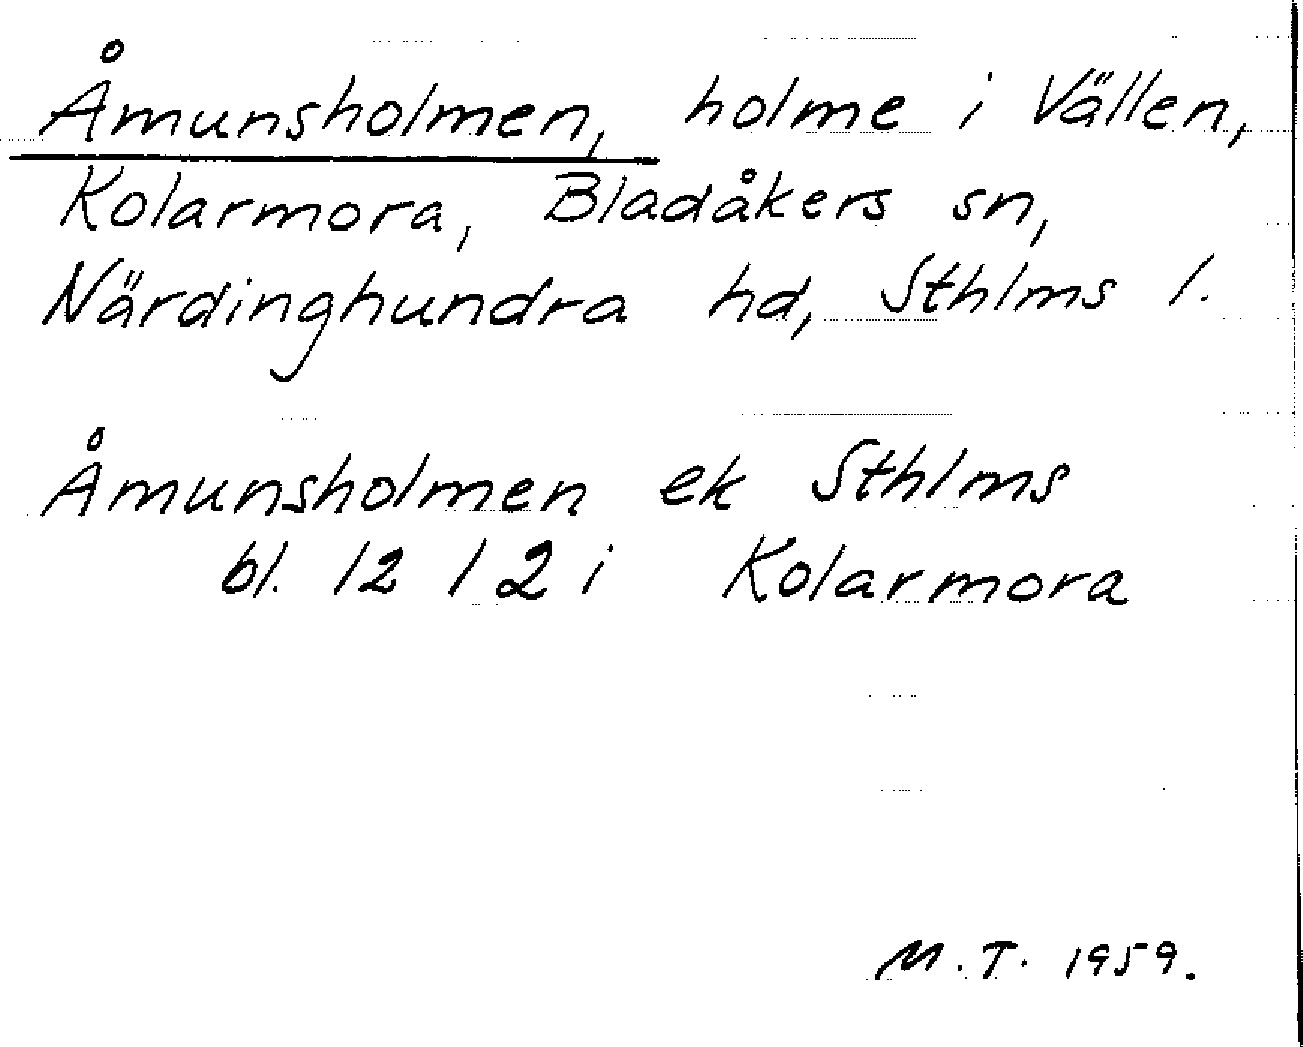 Åmunsholmen, holme i Vällen,
Kolarmora, Bladåkers sn,
Närdinghundra hd, Sthlms l.
Åmunsholmen ek Sthlms
bl. 12 12 i Kolarmora
M.T. 1959.